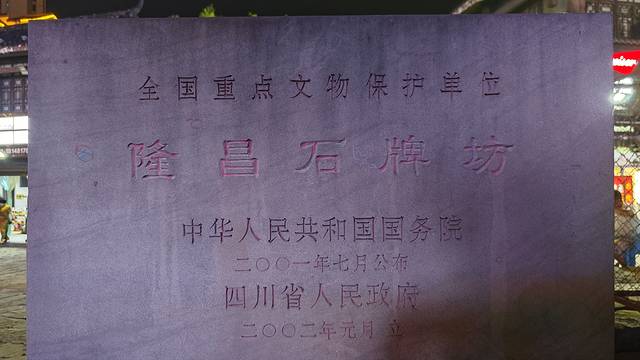 全国重点文物保护单位
隆昌石牌坊
中华人民共和国国务院
二〇〇一年七月公布
四川省人民政府
二〇〇二年元月 立